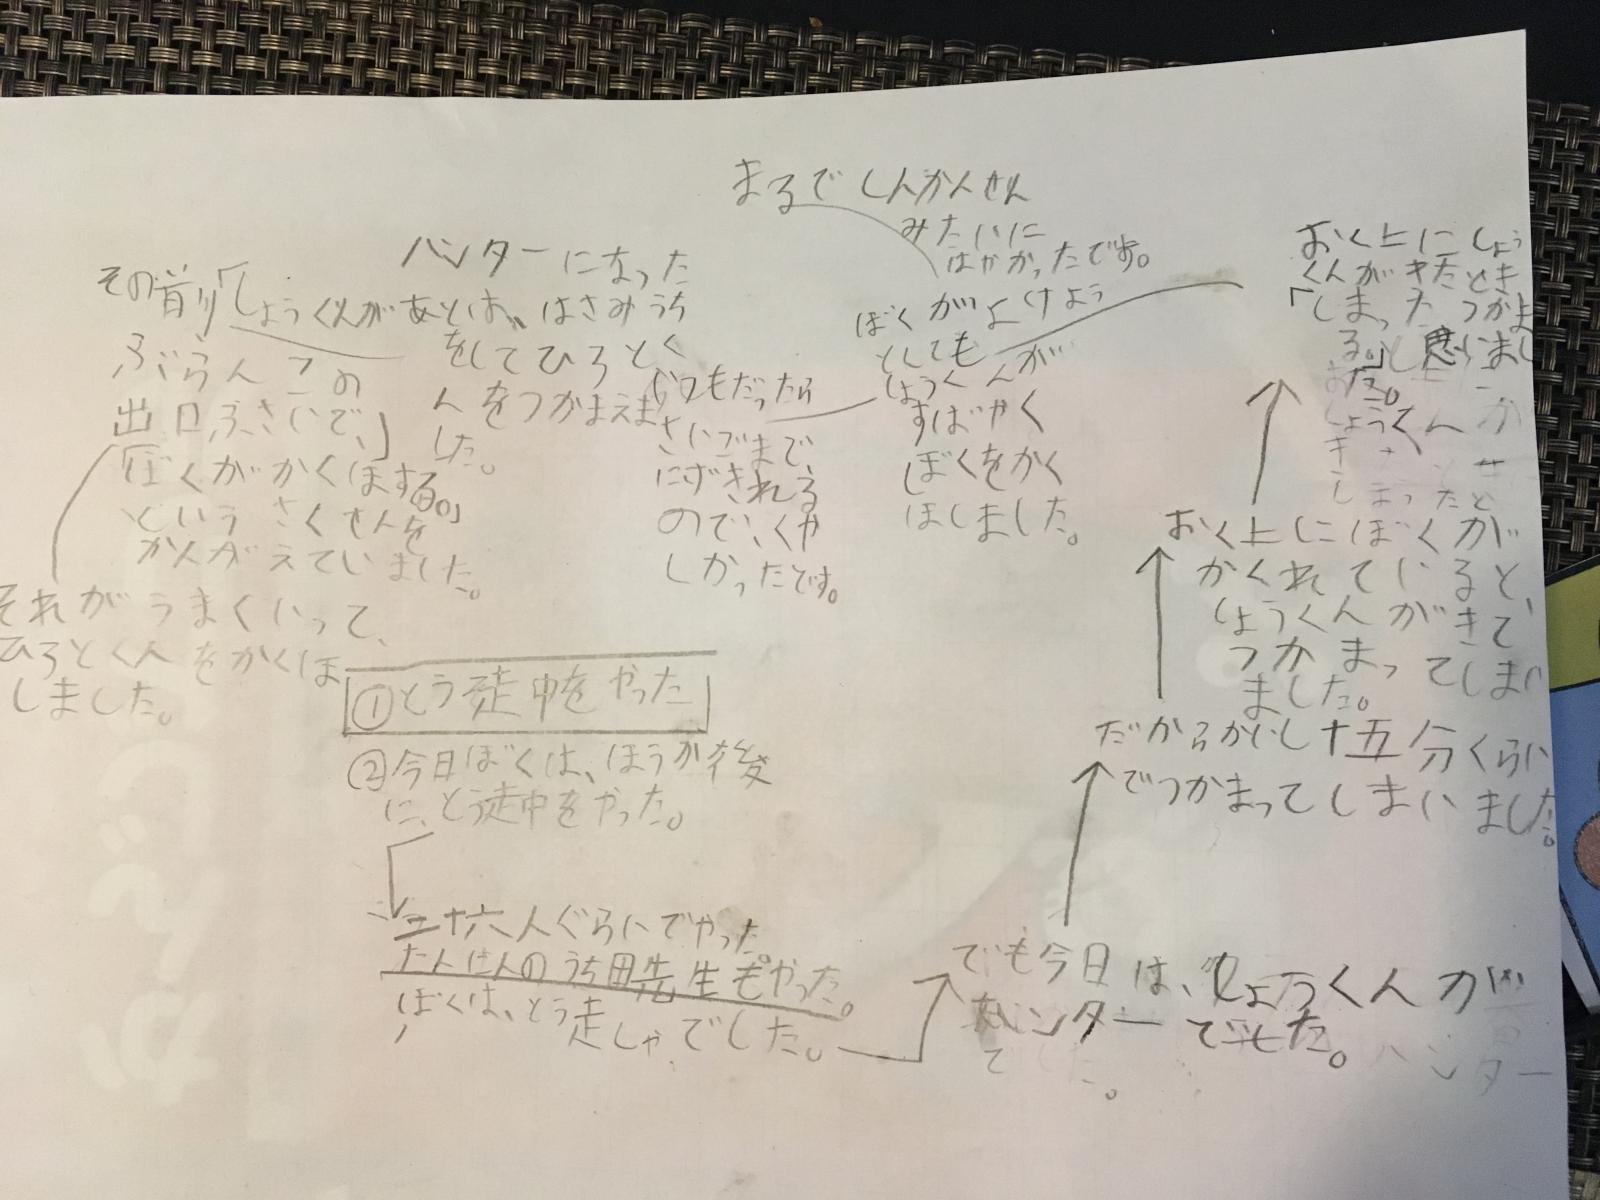 ①とう走中をやった
②今日ぼくは、ほうか後
に、とう走中をやった。
二十六人ぐらいでやった。
たんにんのうち田先生もやった。
ぼくは、とう走しゃでした。
でも今日は、しょうくんが
ハンターでした。
だからかいし十五分くらい
でつかまってしまいました。
おく上にぼくが
かくれていると、
しょうくんがきて
つかまってしまい
ました。
おく上にしょう
くんがきたとき
「しまったつかま
る。」と思いまし
た。
ぼくがよけよう
としても
しょうくんが
すばやく
ぼくをかく
ほしました。
まるでしんかんせん
みたいに
はやかったです。
いつもだったら
さいごまで、
にげきれる
ので、くや
しかったです。
ハンターになった
しょうくんがあとは、はさみうち
をしてひろとく
んをつかまえま
した。
その前り「
ぶらんこの
出口ふさいで、」
ぼくがかくほする。」
というさくせんを
かんがえていました。
それがうまくいって、
ひろとくんをかくほ
しました。